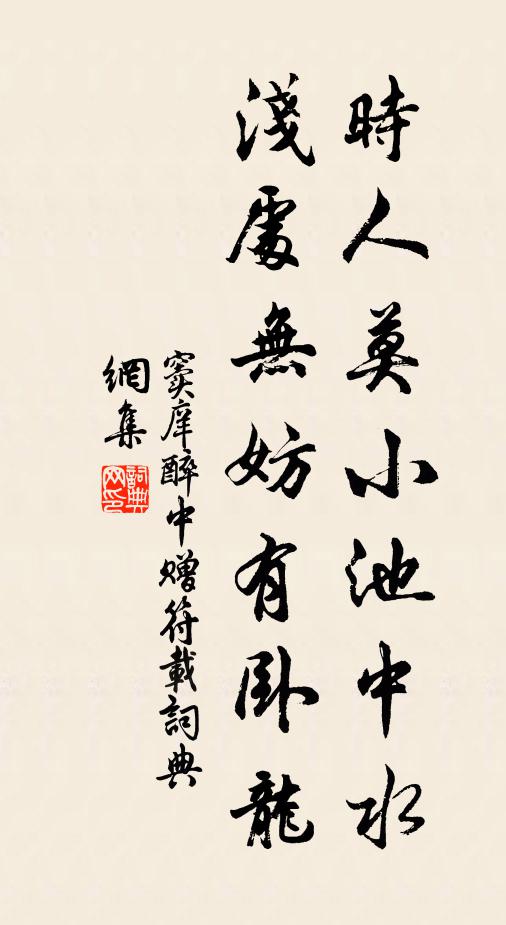 時人莫小池中水
淺處無妨有卧龍
竇庠醉中贈符載詞典
網集
詞典網印